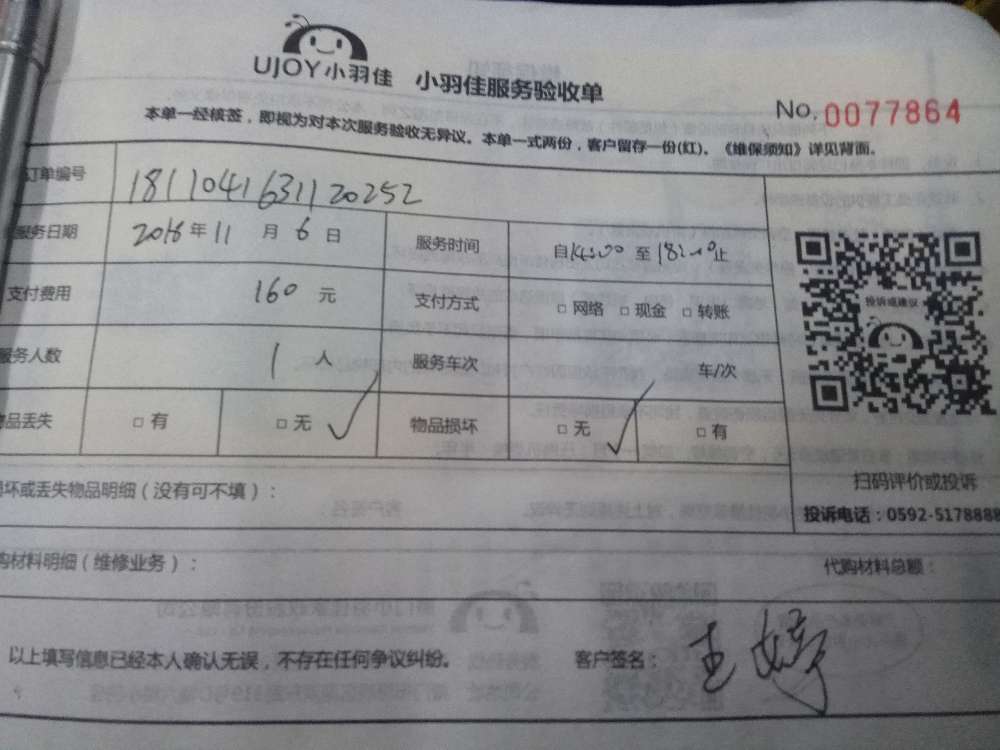 UJOY小羽佳 小羽佳服务验收单
No. 0077864
本单一经核签，即视为对本次服务验收无异议。本单一式两份，客户留存一份(红)。《维保须知》详见背面。
订单编号 1811041631120252
服务日期 2016年11月6日 服务时间 自14:00至18:00止
支付费用 160元 支付方式 □网络 □现金 □转账
服务人数 1人 服务车次 车/次
物品丢失 □有 □无 ✓ 物品损坏 □无 ✓ □有
投诉或建议
扫码评价或投诉
投诉电话：0592-5178888
损坏或丢失物品明细（没有可不填）：
购材料明细（维修业务）： 代购材料总额：
以上填写信息已经本人确认无误，不存在任何争议纠纷。 客户签名：王婷